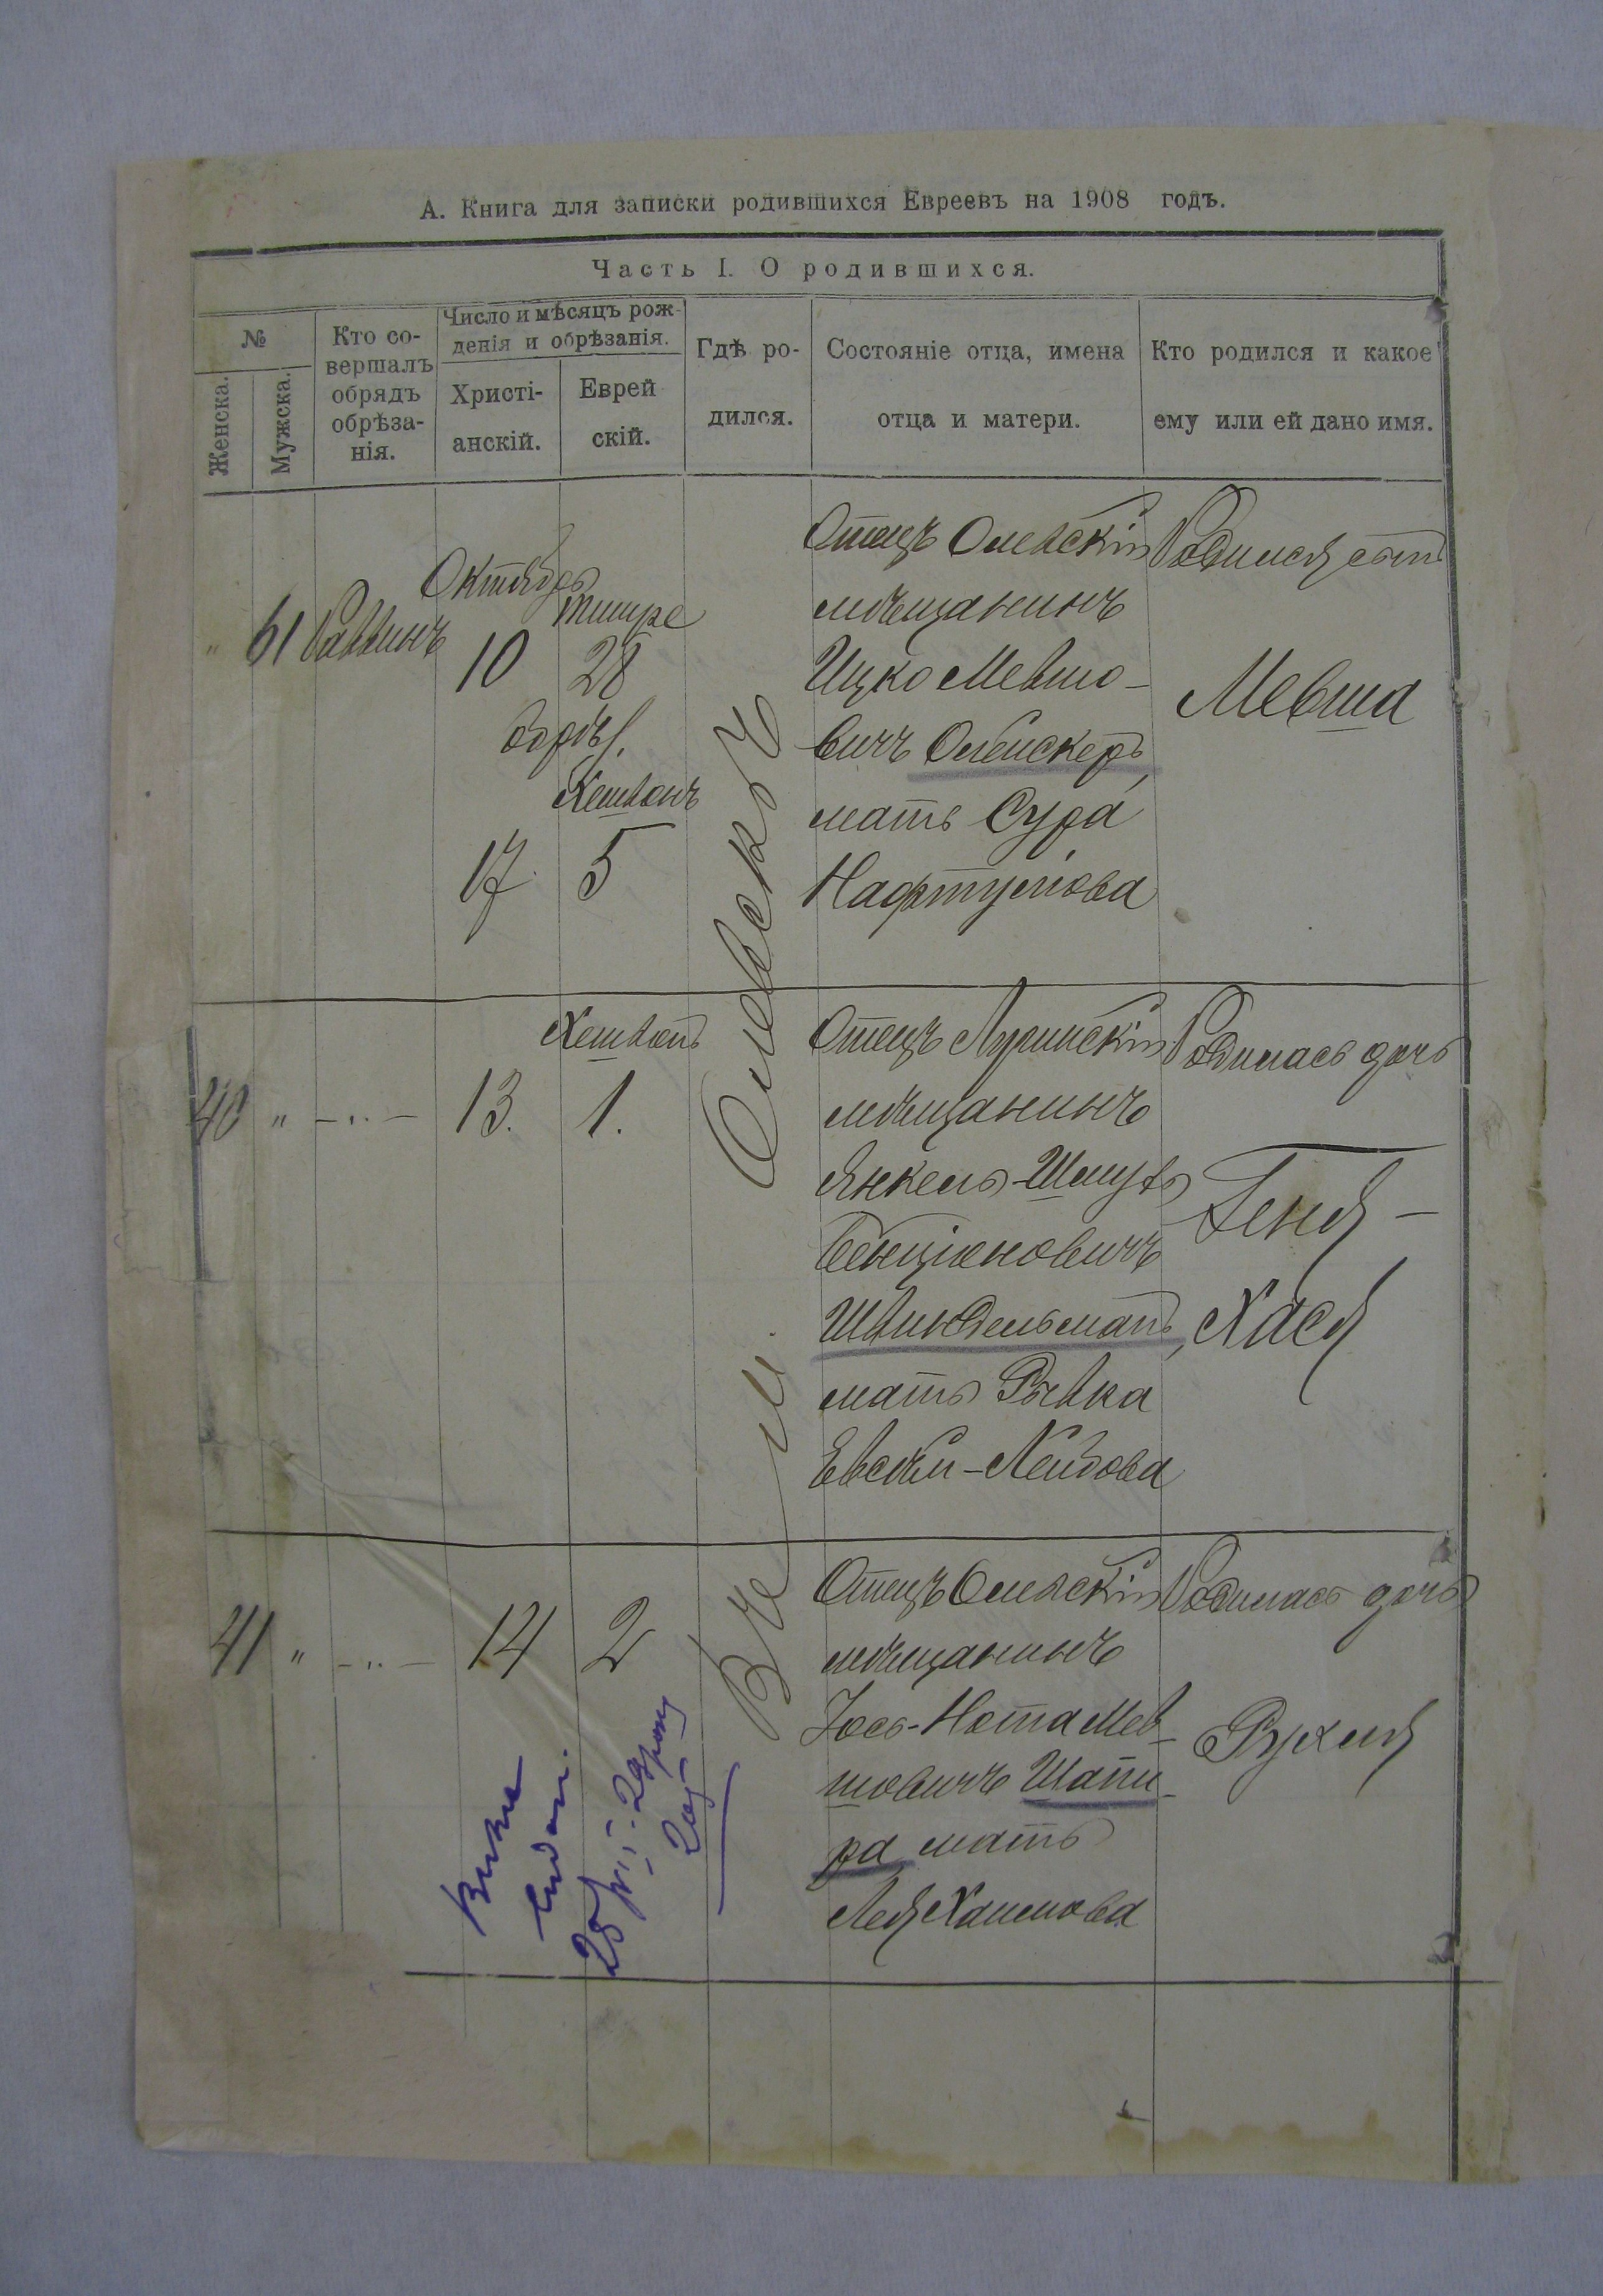 А. Книга для записки родившихся Евреевъ на 1908 годъ.
Часть I. О родившихся.
№
Женска.
Мужска.
Кто со-
вершалъ
обрядъ
обрѣза-
нія.
Число и мѣсяцъ рож-
денія и обрѣзанія.
Христі-
анскій.
Еврей
скій.
Гдѣ ро-
дился.
Состояніе отца, имена
отца и матери.
Кто родился и какое
ему или ей дано имя.
" 61 Раввинъ
Октябрь
10
Тишре
28
Хешванъ
17. 5
Отецъ Олевскій
мѣщанинъ
Ицко Мевшо-
вичъ Олейскеръ,
мать Сура
Нафтулова
Родился сынъ
Мевша
въ м. Олевскѣ
40 " - " - 13.
Хешванъ
1.
Отецъ
мѣщанинъ
Янкель-Шмулъ
Бенціоновичъ
Швиндельманъ,
мать Рывка
Евсѣй-Лейбова
Родилась дочь
Геня-
Хася
41 " - " - 14 2
Отецъ Олевскій
мѣщанинъ
Іось-Нота Мев-
шовичъ Шапи-
ра мать
Лея Хаимова
Родилась дочь
Рухля